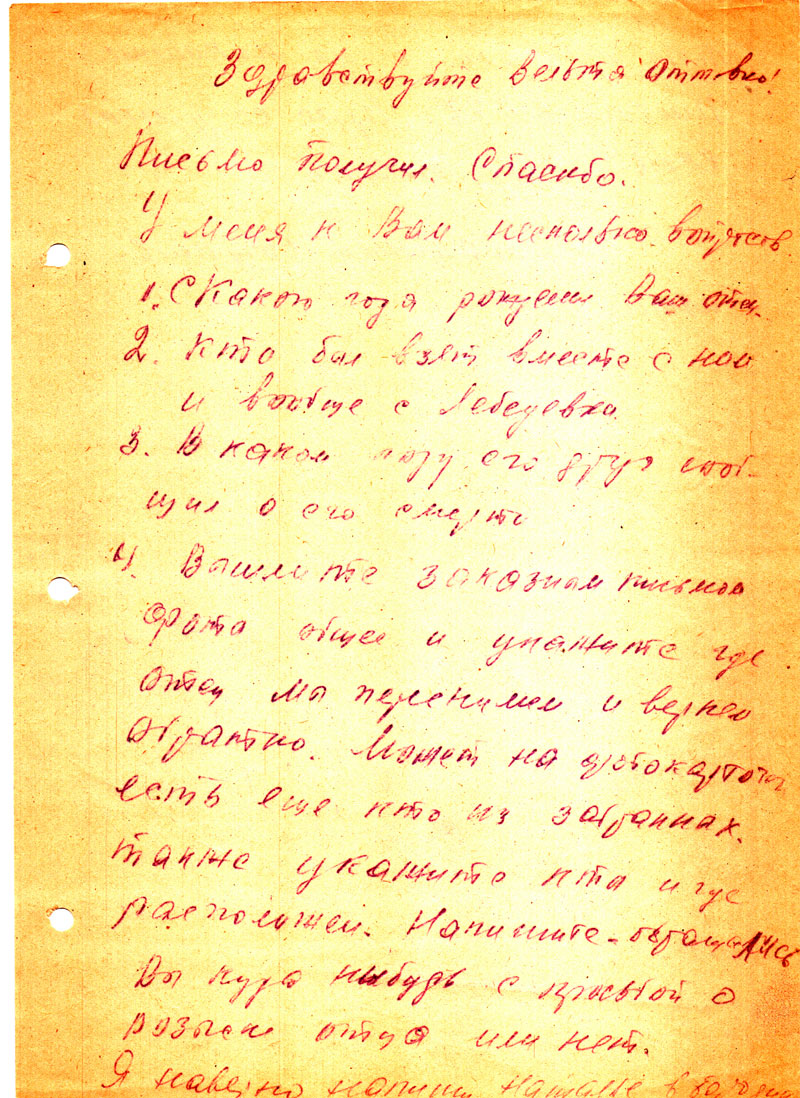 Здравствуйте Вельта Оттовна!
Письмо получил. Спасибо.
У меня к Вам несколько вопросов
1. С Какого года рождения Ваш отец.
2. Кто был взят вместе с ним
и вообще с Лебедевки
3. В каком году его друг сооб-
щил о его смерти
4. Вышлите заказным письмом
фото общее и укажите где
отец мы переснимем и вернем
обратно. Может на фотокарточке
есть еще кто из забранных.
также укажите кто и где
расположен. Напишите - обращались
Вы куда нибудь с просьбой о
розыске отца или нет.
Я наверно напишу Наталье в